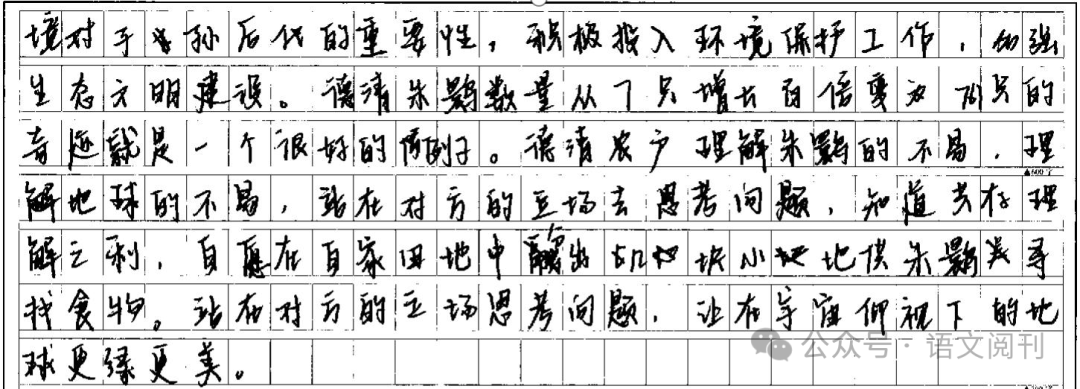 境对于子孙后代的重要性,积极投入环境保护工作,加强
生态文明建设。德清朱鹮数量从7只增长百倍变为 只的
奇迹就是一个很好的例子。德清农户理解朱鹮的不易,理
▲600字
解地球的不易,站在对方的立场去思考问题,知道共存理
解之利,自愿在自家田地中 出 块小 地供朱鹮类寻
找食物。站在对方的立场思考问题,让在宇宙仰视下的地
球更绿更美。
公众号·语文阅刊